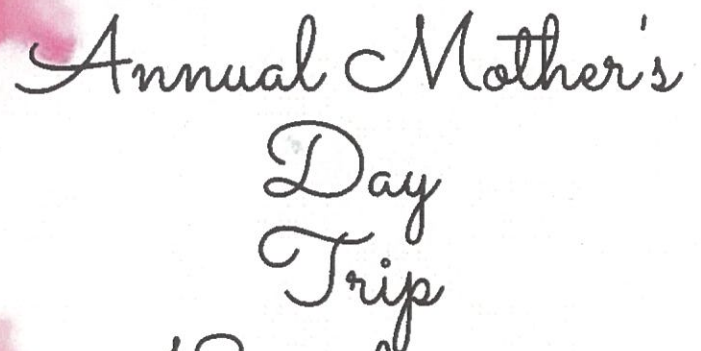 Annual Mother's
Day
Trip